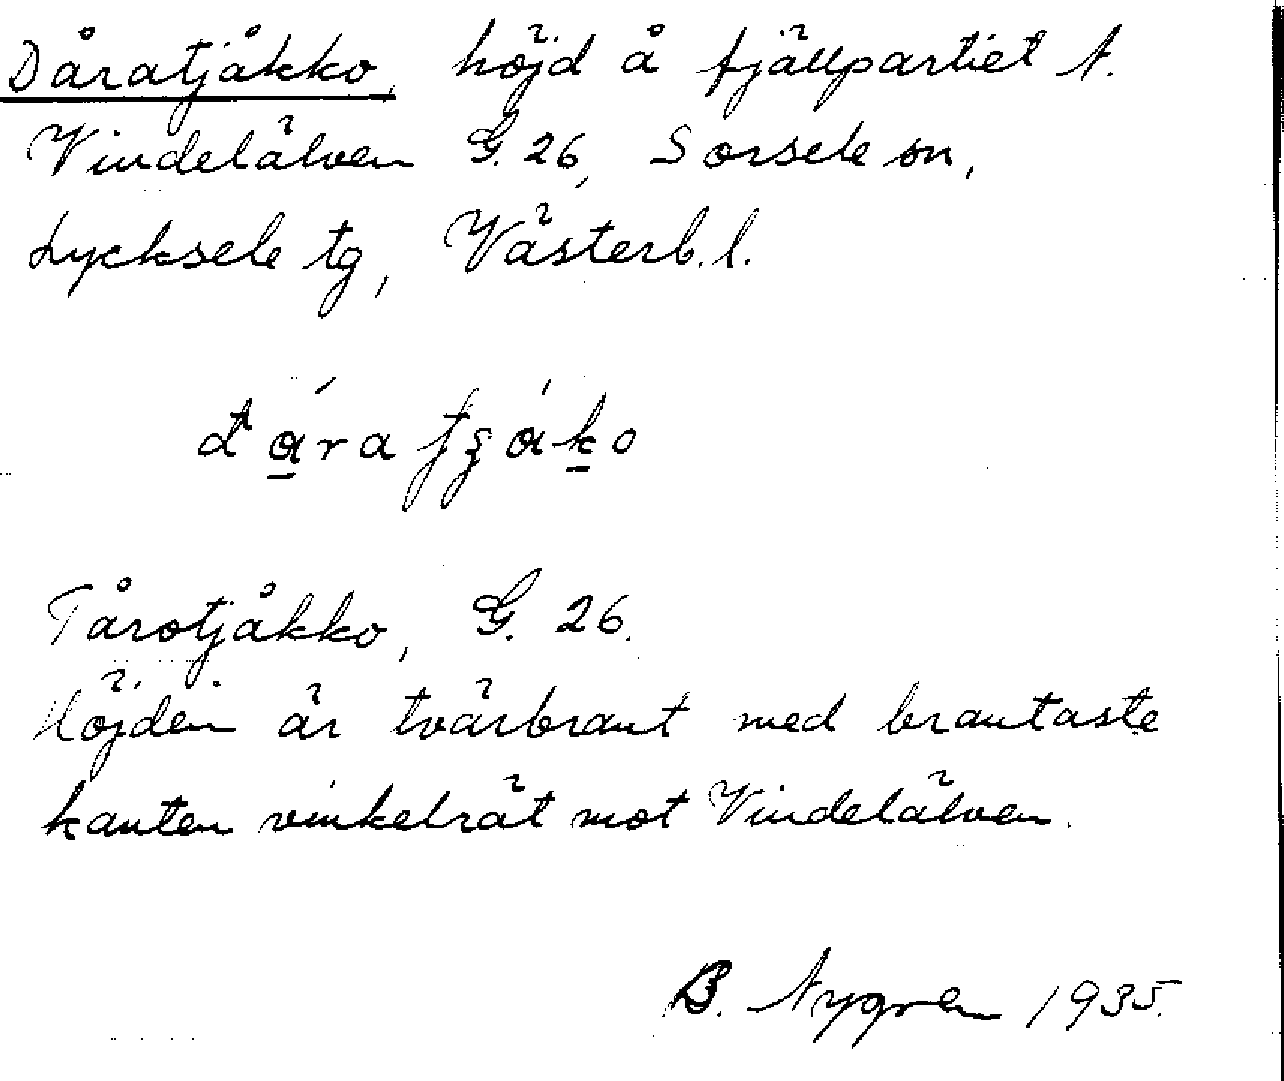 Dåratjåkko, höjd å fjällpartiet N.
Vindelälven G. 26, Sorsele sn,
Lycksele tg, Västerb. l.
Tårotjåkko, G. 26.
Höjden är tvärbrant med brantaste
kanten vinkelrät mot Vindelälven.
B. Nygren 1935.